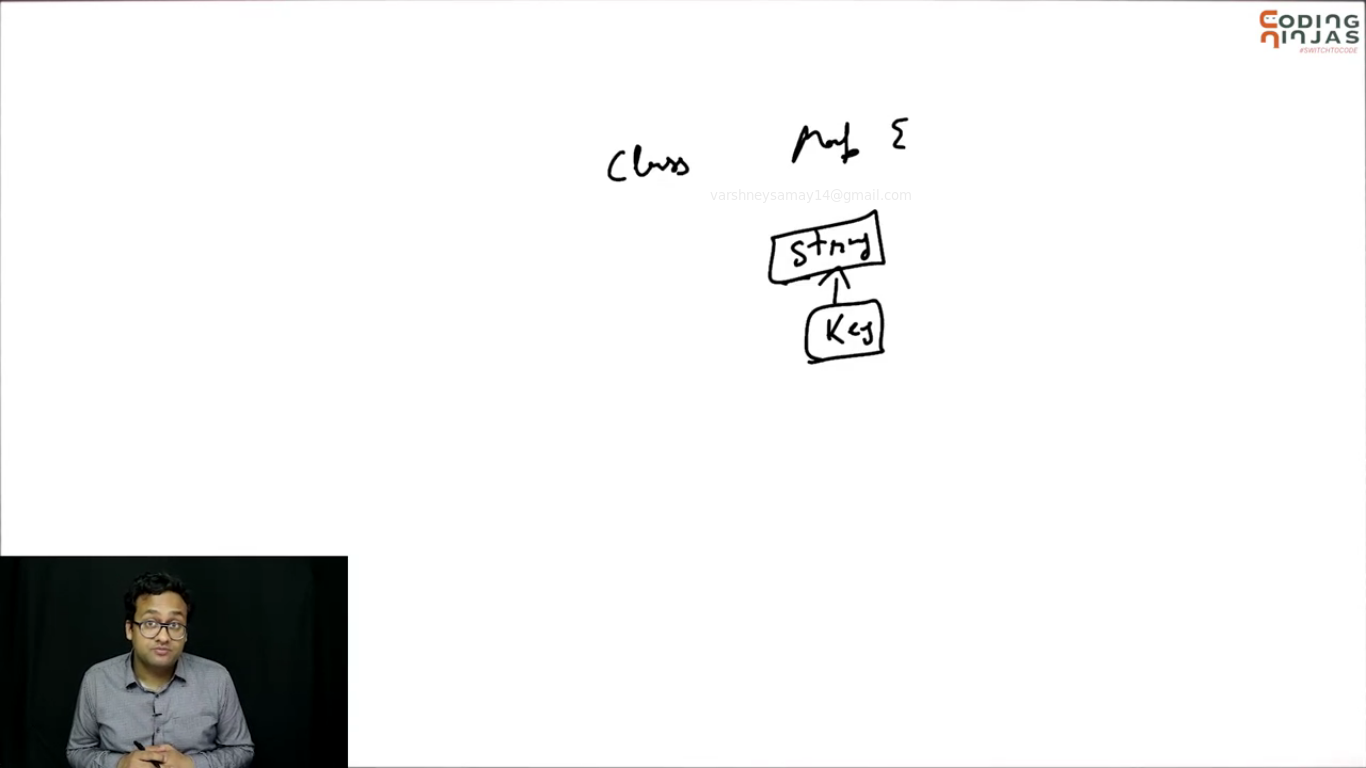 CODING
NINJAS
#SWITCHTOCODE
Class Map {
varshneysamay14@gmail.com
String
Key